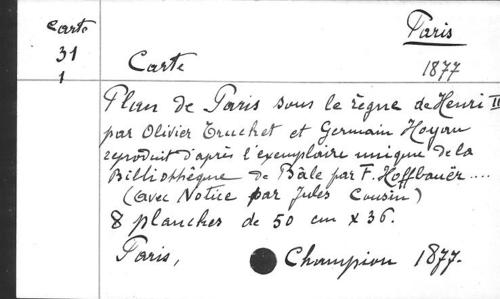 Carte
31
1
Paris
Carte
1877
Plan de Paris sous le règne de Henri II
par Olivier Truchet et Germain Hoyau
reproduit d'après l'exemplaire unique de la
Billiothèque de Bâle par F. Hoffbauër....
(avec Notice par Jules Cousin)
8 planches de 50 cm x 36.
Paris, Champion 1877.